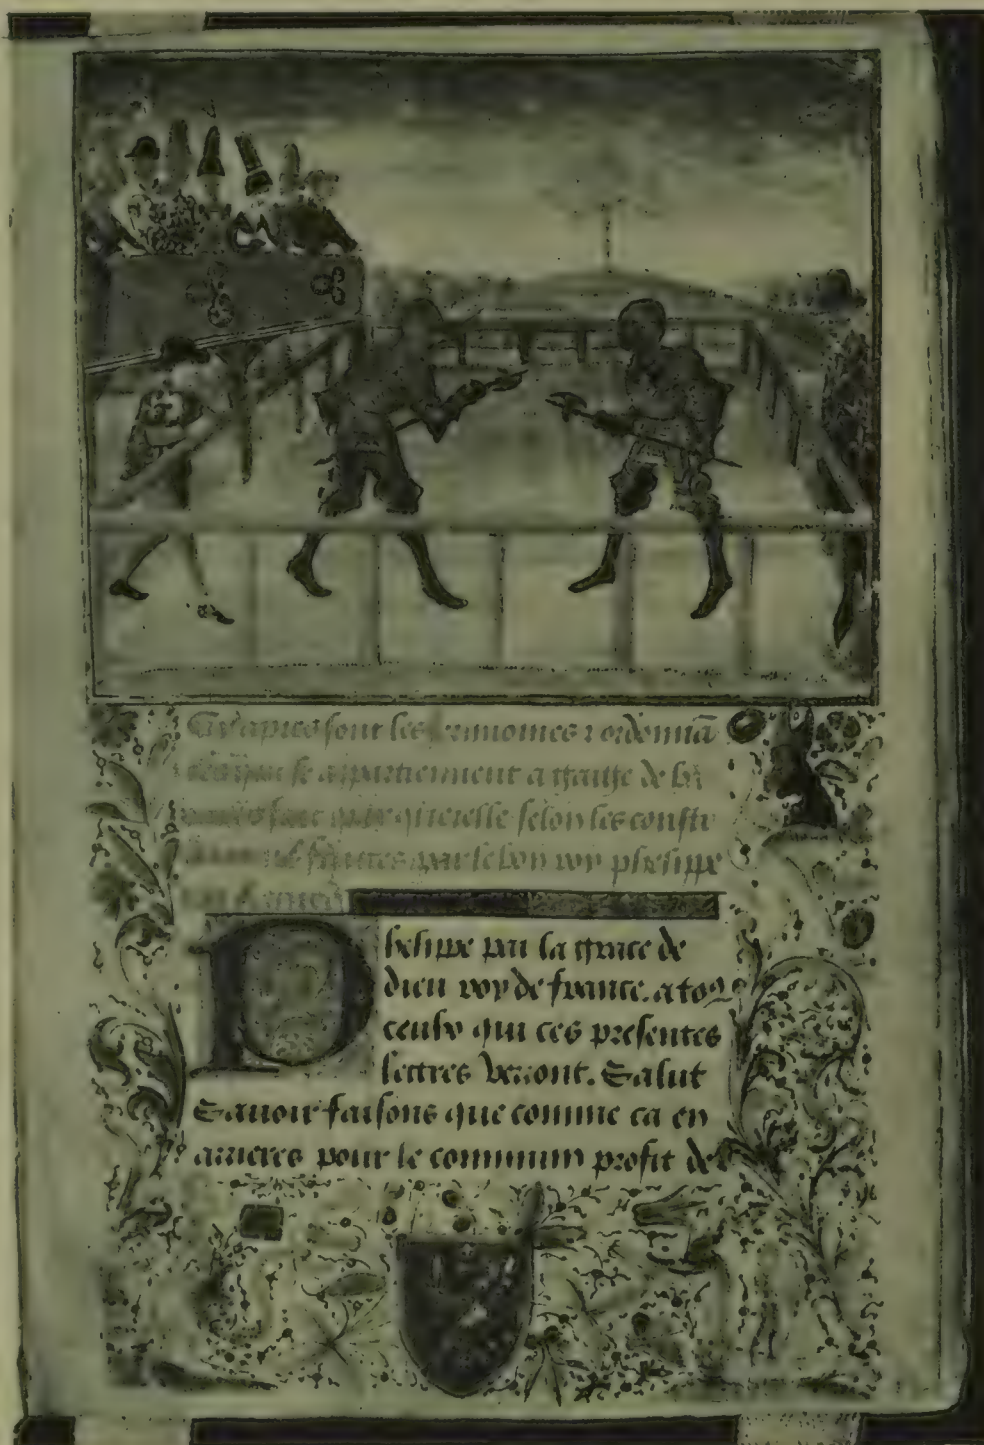 Cy apres sont les serimonies ⁊ ordonnā
ces qui se appartiennent a gaige de ba
faire querelle selon les constit
faittes par le bon roy phelippe
de france
Phelippe par la grace de
dieu roy de france. a toꝰ
ceulx qui ces presentes
lettres verront. Salut
Sauoir faisons que comme ca en
arrieres pour le commun profit de